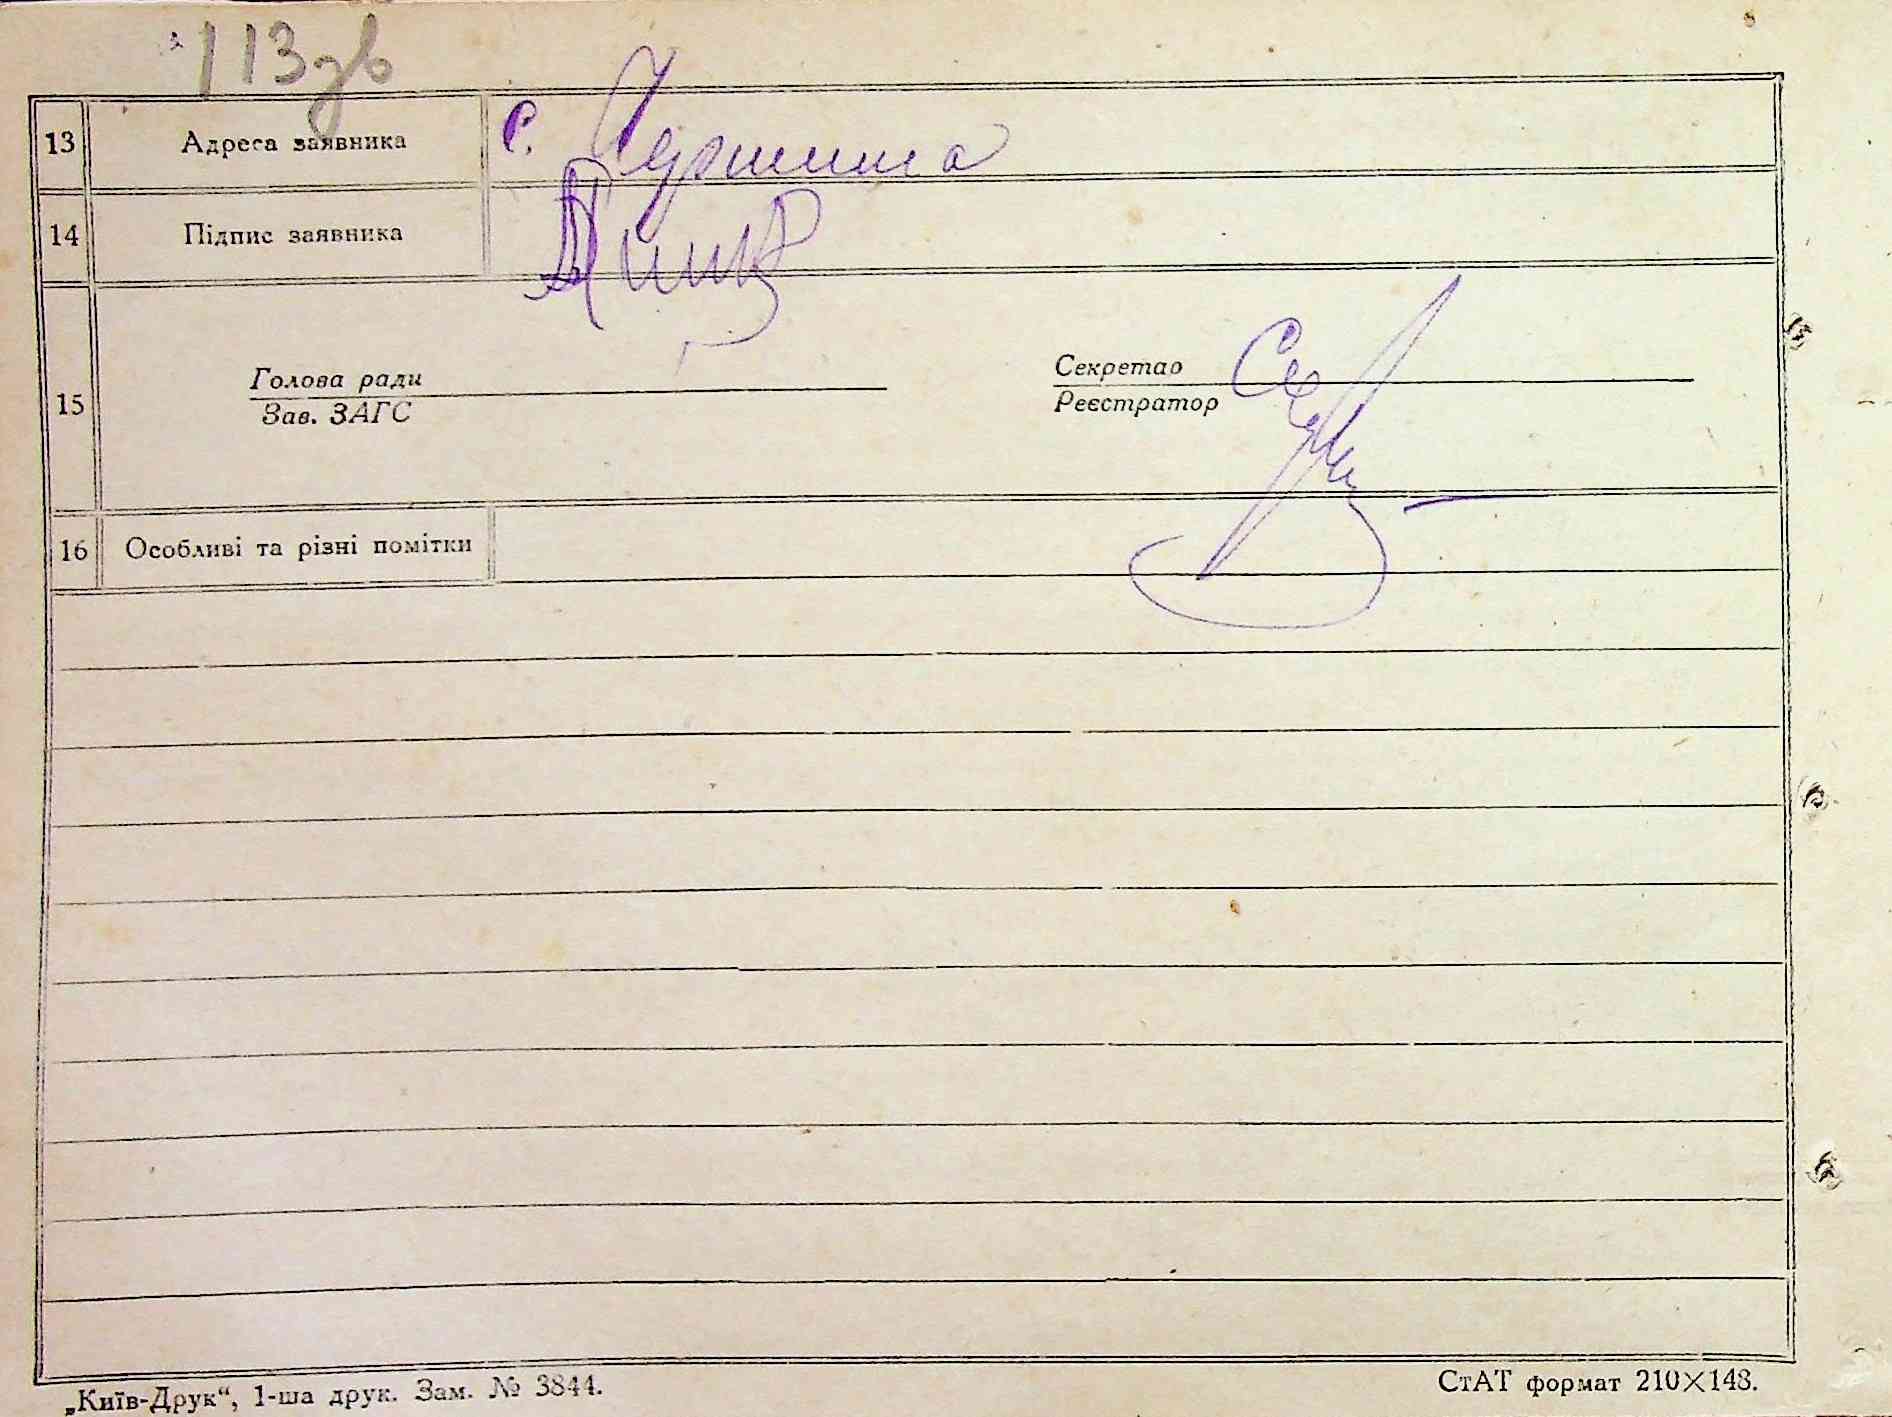 113 зв
13 Адреса заявника с.
14 Підпис заявника
15 Голова ради Секретар
Зав. ЗАГС Реєстратор
16 Особливі та різні помітки
„Київ-Друк“, 1-ша друк. Зам. № 3844. СтАТ формат 210×148.